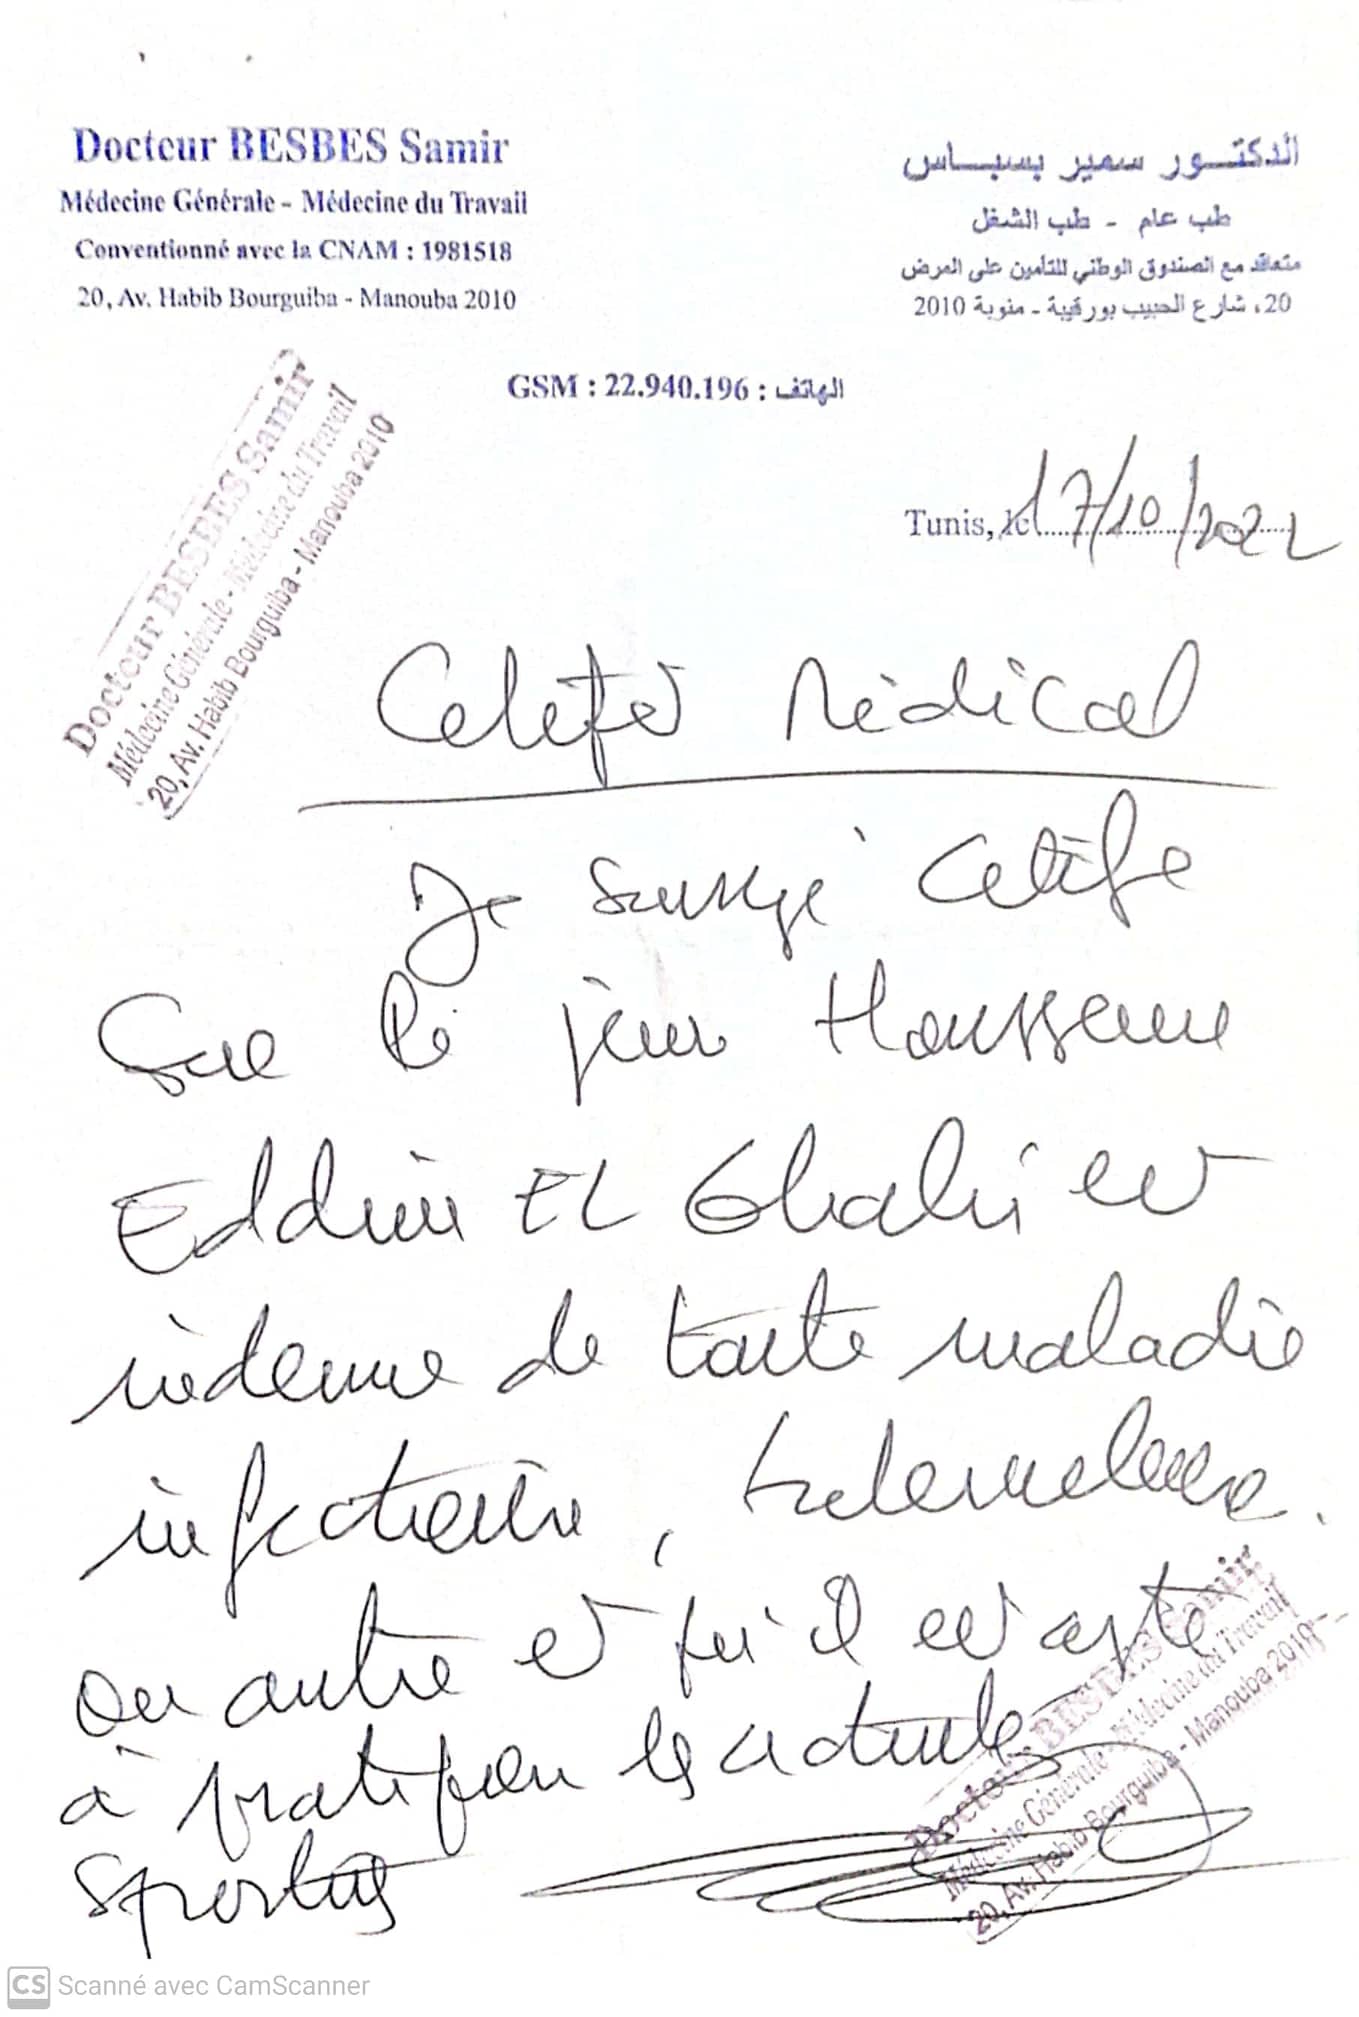 Docteur BESBES Samir
Médecine Générale - Médecine du Travail
Conventionné avec la CNAM : 1981518
20, Av. Habib Bourguiba - Manouba 2010
الدكتور سمير بسباس
طب عام - طب الشغل
متعاقد مع الصندوق الوطني للتأمين على المرض
20، شارع الحبيب بورقيبة - منوبة 2010
GSM : 22.940.196 : الهاتف
Docteur BESBES Samir
Médecine Générale - Médecine du Travail
20, Av. Habib Bourguiba - Manouba 2010
Tunis, le 17/10/2022
Certificat Médical
Je soussigné certifie
Que le jeune Houssem
Eddine EL Ghali est
indemne de toute maladie
infectieuse,
ou autre et qu'il est apte
à pratiquer les activités
Sportives
Docteur BESBES Samir
Médecine Générale - Médecine du Travail
20, Av. Habib Bourguiba - Manouba 2010
CS Scanné avec CamScanner